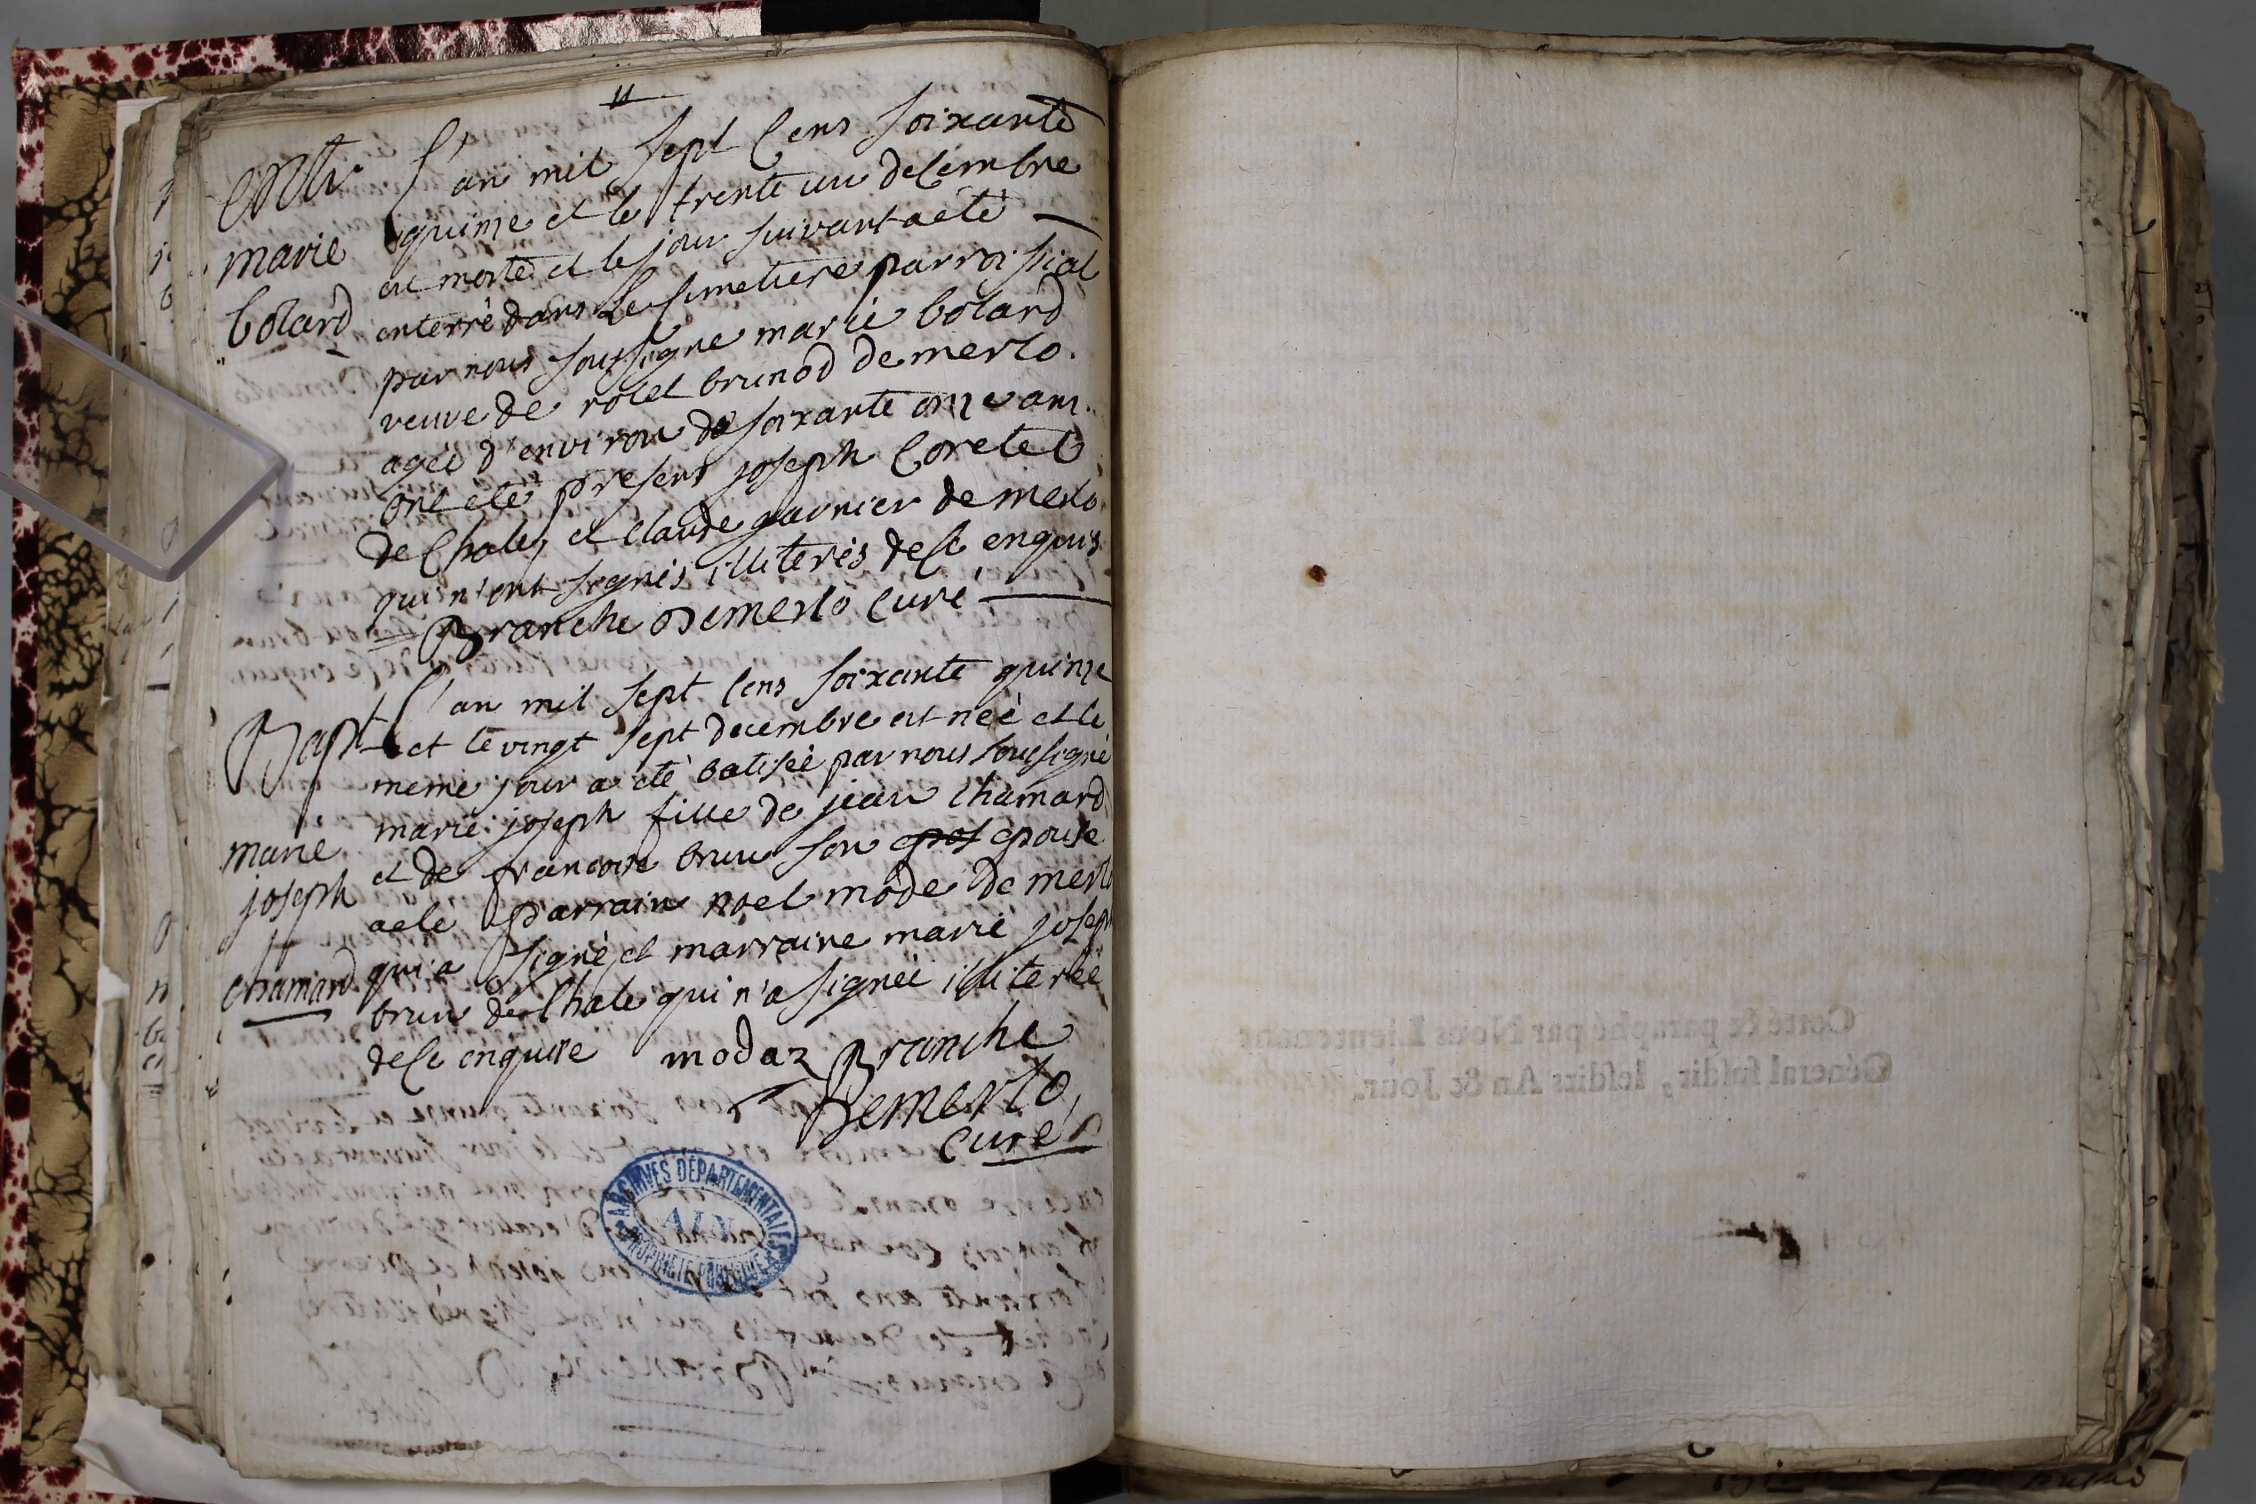 11
Entr
marie
bolard
L'an mil sept Cens soixante
quinze et le trente un decembre
est morte et le jour suivant a été
enterré dans Le Simetiere parroissial
par nous soussigne marie bolard
veuve de rolet brunod de merlo.
agée d'environ de soixante onze ans.
ont eté presens joseph Coretet
de Chaley et claude garnier de merlo
qui n'ont signés illiterés de ce enquis
Branche Demerlo Curé
Bapt
marie
joseph
Chamard
L'an mil sept Cens soixante quinze
et le vingt sept decembre est née et le
meme jour a été batisée par nous soussigné
marie joseph fille de jean Chamard
et de francoise brun son epos epouse
a ete parrain noel mode de merlo
qui a signé et marraine marie joseph
brun de Chale qui n'a signée illiterée
de ce enquise modaz Branche
Demerlo
Curé
ARCHIVES DÉPARTEMENTALES
AIN
PROPRIÉTÉ PUBLIQUE
Cotté & paraphé par Nous Lieutenant
Général susdit, lesdits An & Jour.